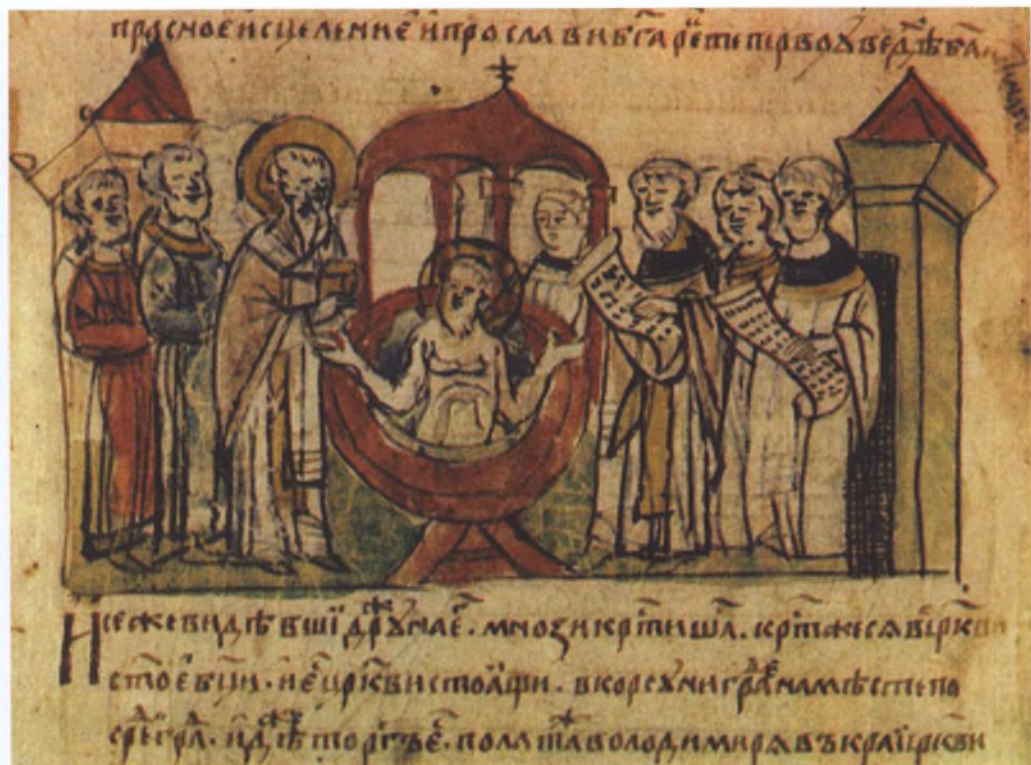 прасноеисцеление ипрославибг҃а ре҃ тепервоуведѣ ба҃
Исежевидѣвшїдрꙋжинае҃ . мнозикрт҃ишѧ . крт҃жесѧвцр҃кви
ст҃оебц҃и . ие҃црк҃вистоѧщи . вкорсꙋниградѣнамѣстепо
средⷭ҇град . идѣжⷤторгъе҃ . полатⷤаволодимирѧвъкраицр҃кви